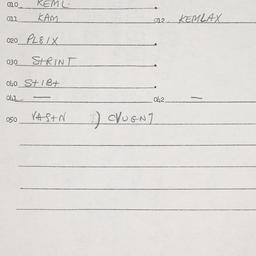 010 KEML
011 KAM 012 KEMLAX
020 PLEIX
030 STRINT
040 STIBT
041 — 042 —
050 VASTN ) CVUENT